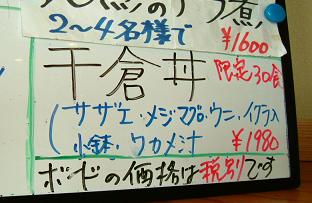 のうつ煮
2〜4名様で ¥1600
千倉丼 限定30食
(サザエ・メジマグロ・ウニ・イクラ入
小鉢・ワカメ汁 ¥1980
ボードの価格は税別です